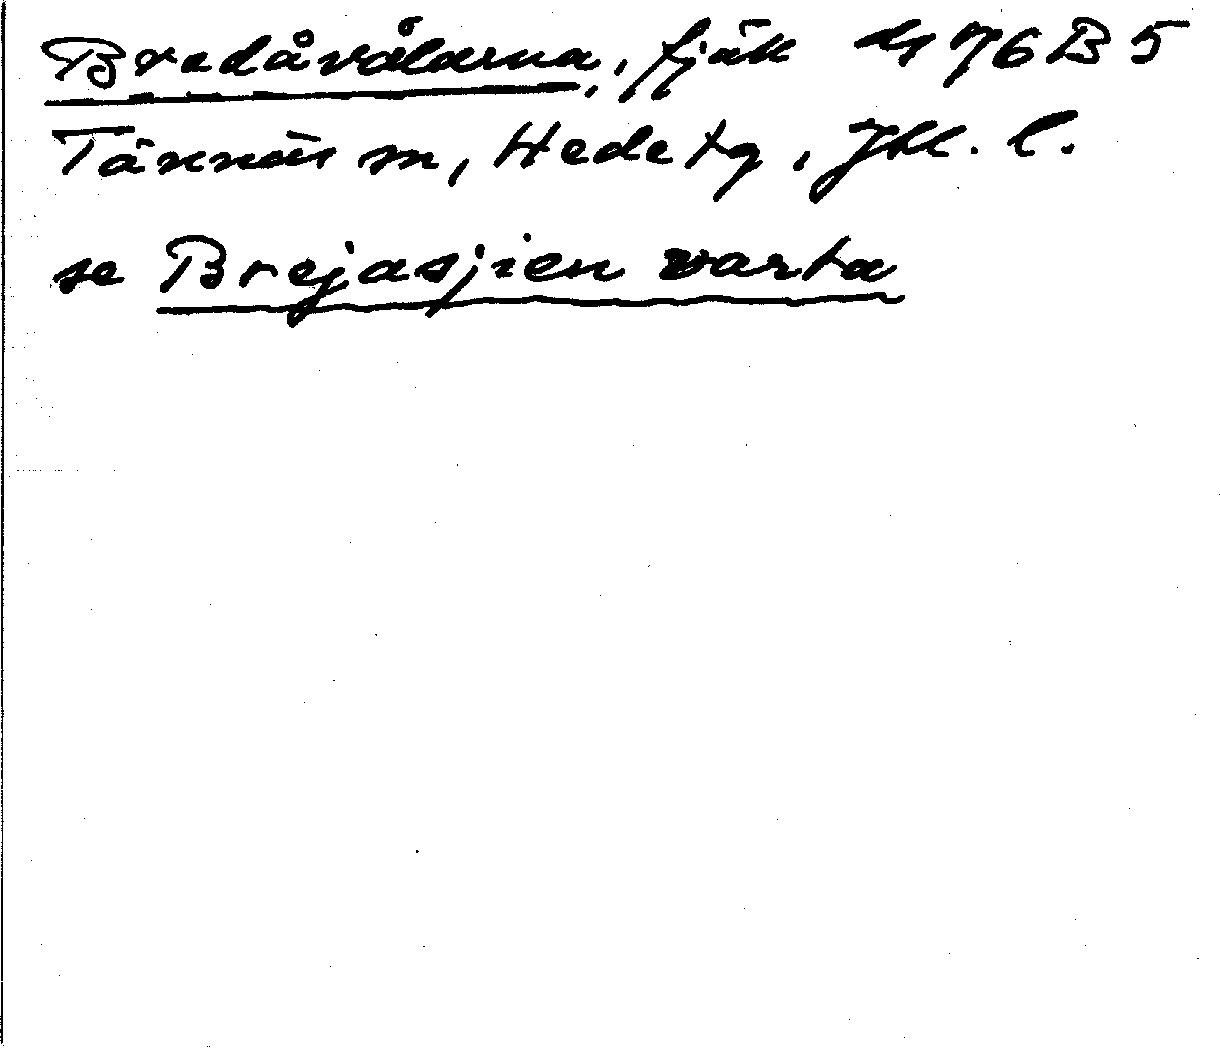 Bredåvålarna, fjäll 176 B 5
Tännäs sn, Hede tg, Jtl. l.
se Brejasjïen varta